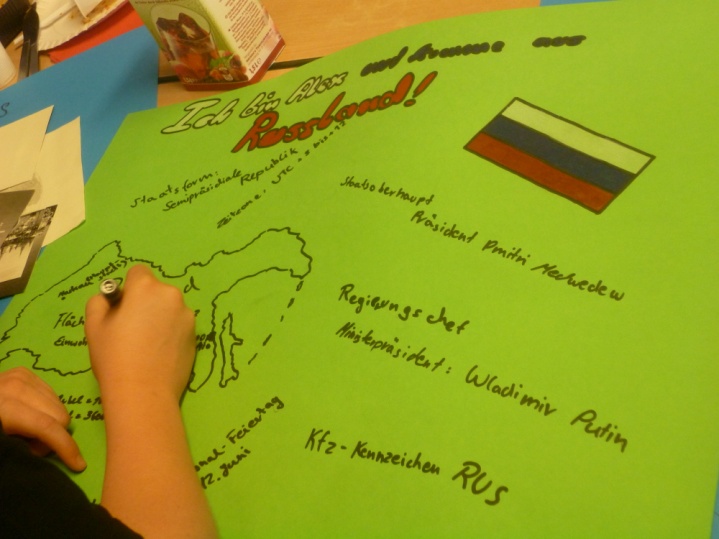 Ich bin Alex und komme aus
Russland!
Staatsform:
Semipräsidiale
Republik
Zeitzone: UTC
Staatsoberhaupt
Präsident Dmitri Medwedew
Fläch
Regierungschef
Ministerpräsident: Wladimir Putin
onal-Feiertag
12. Juni
Kfz-Kennzeichen RUS